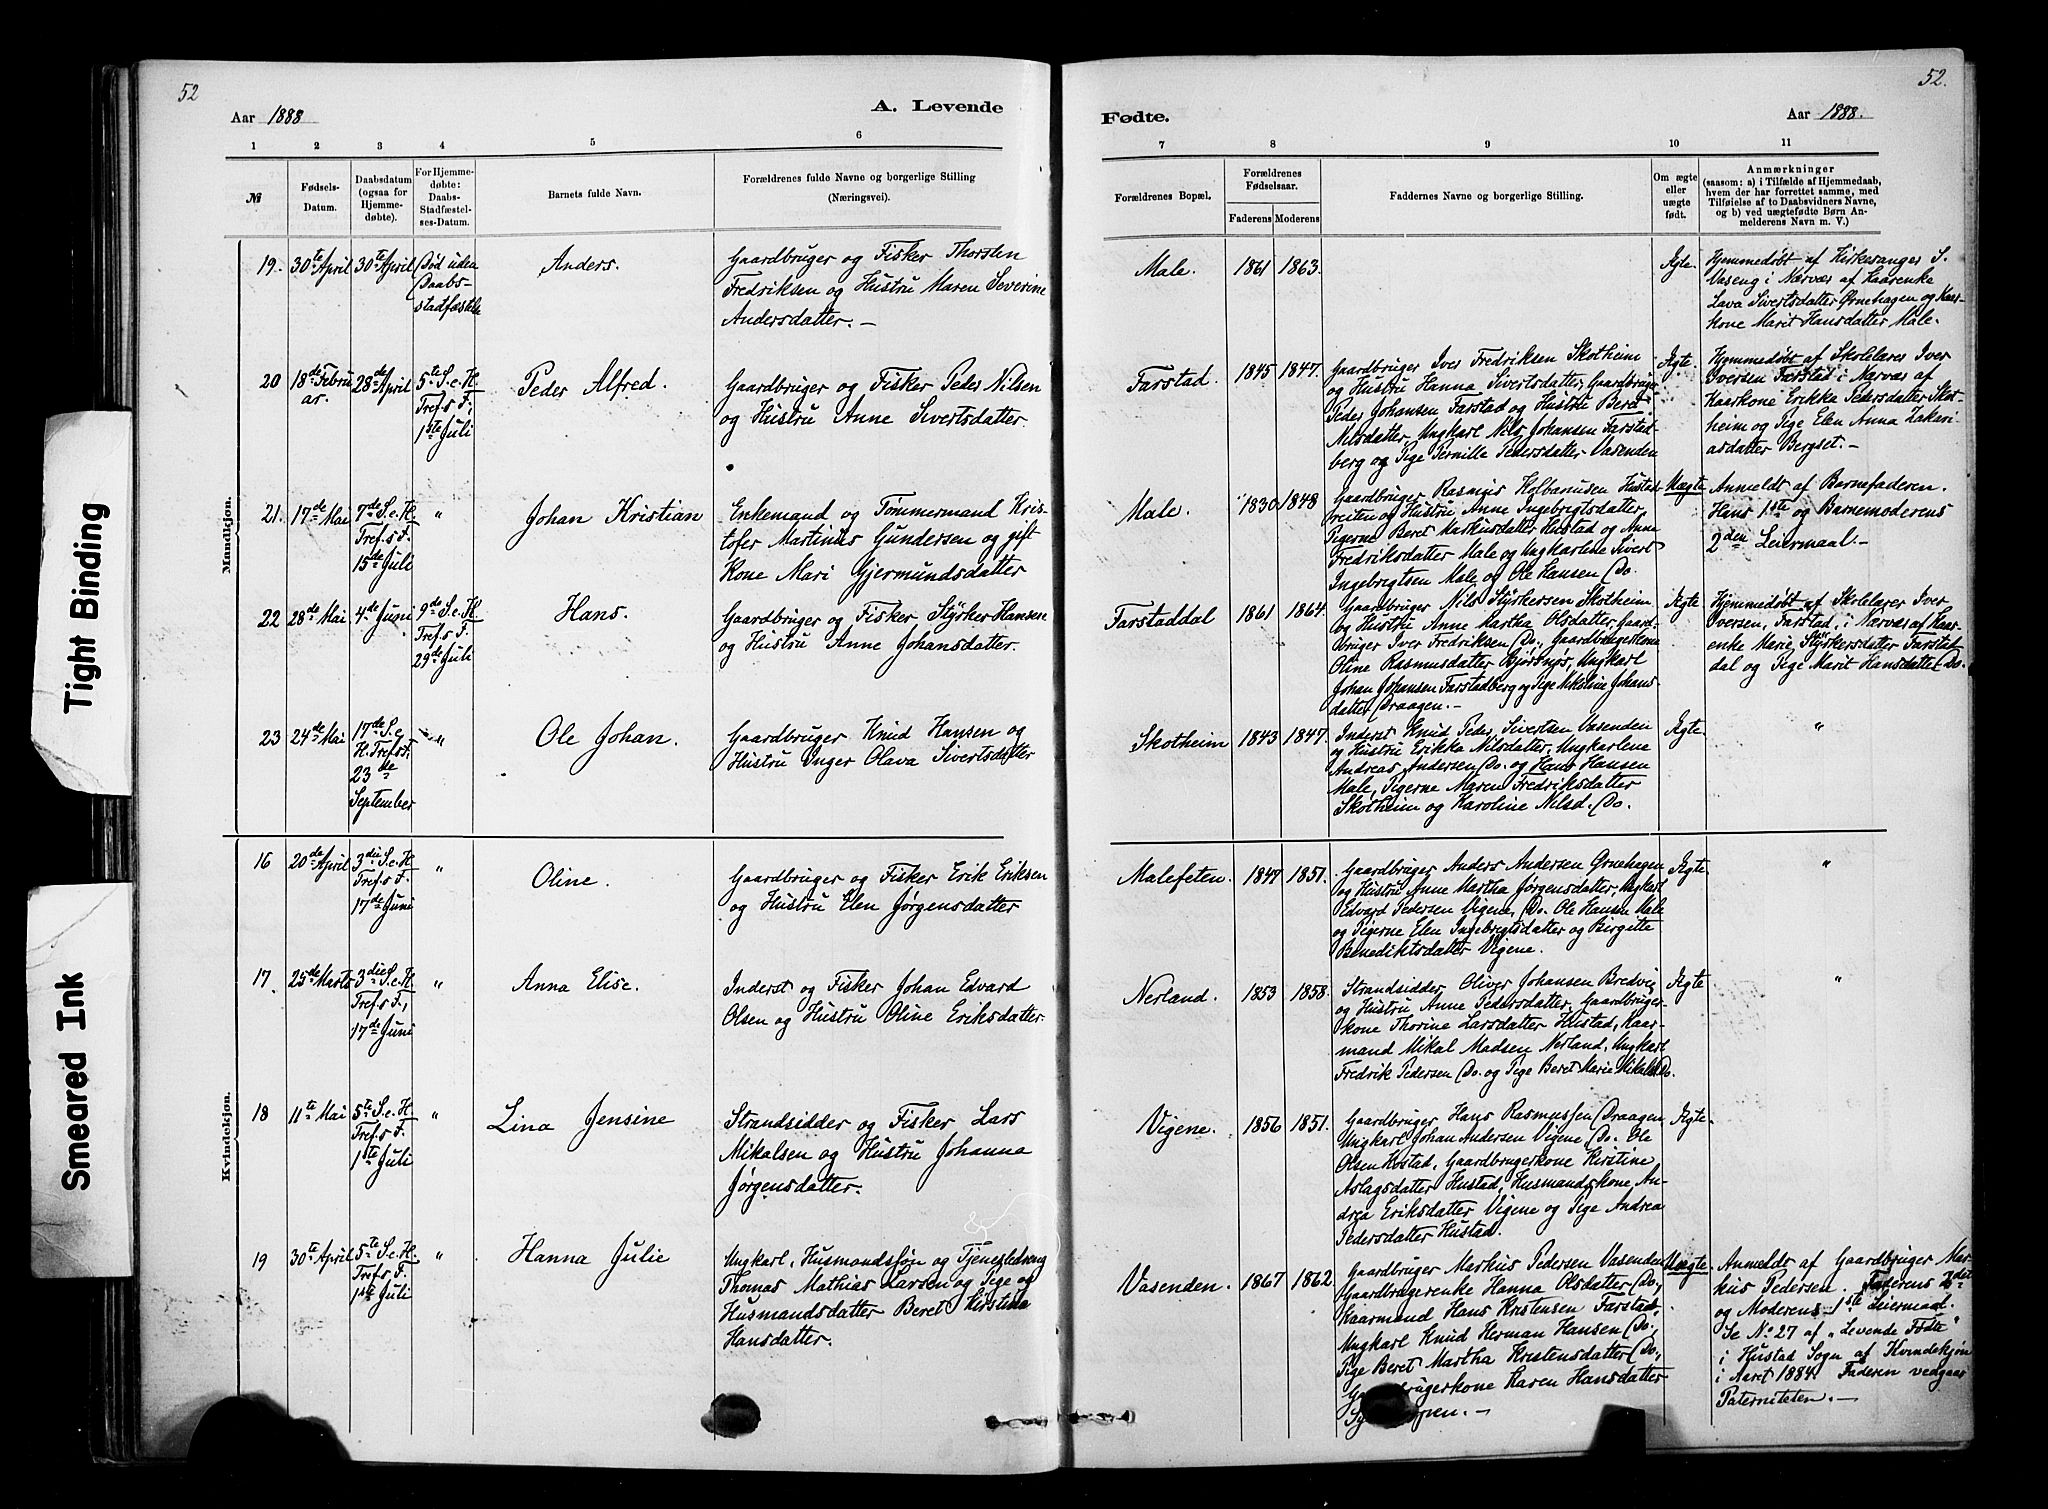 52
Aar 1888
A. Levende
1 2 3 4 5 6
№
Fødsels-
Datum.
Daabsdatum
(ogsaa for
Hjemme-
døbte).
For Hjemme-
døbte:
Daabs-
Stadfæstel-
ses-Datum.
Barnets fulde Navn.
Forældrenes fulde Navne og borgerlige Stilling
(Næringsvei).
Mandkjøn.
19. 30te April 30te April Død uden
Daabs-
stadfæstelse
Anders.
Gaardbruger og Fisker Thorsten
Fredriksen og Hustru Maren Severine
Andersdatter. —
20 18de Febru
ar.
28de April
5te S. e. H.
Tref.s F.,
1ste Juli
Peder Alfred.
Gaardbruger og Fisker Peder Nilsen
og Hustru Anne Sivertsdatter.
21. 17de Mai
7de S. e. H.
Tref.s F.
15de Juli
"
Johan Kristian
Enkemand og Tømmermand Kris-
tofer Martinus Gundersen og gift
Kone Mari Gjermundsdatter
22 28de Mai 4de Juni
9de S. e. H.
Tref.s F.
29de Juli
Hans.
Gaardbruger og Fisker Styrker Hansen
og Hustru Anne Johansdatter.
23 24de Mai
17de S. e.
H. Tref.s F.,
23de
September
"
Ole Johan.
Gaardbruger Knud Hansen og
Hustru Inger Olava Sivertsdatter
Kvindekjøn.
16 20de April
3die S. e. H.
Tref.s F.
17de Juni
"
Oline.
Gaardbruger og Fisker Erik Eriksen
og Hustru Elen Jørgensdatter
17 25de Marts
3die S. e. H.
Tref.s F.,
17de Juni
"
Anna Elise.
Inderst og Fisker Johan Edvard
Olsen og Hustru Oline Eriksdatter.
18 11te Mai
5te S. e. H.
Tref.s F.
1ste Juli
"
Lina Jensine
Strandsidder og Fisker Lars
Mikalsen og Hustru Johanna
Jørgensdatter.
19 30te April
5te S. e. H.
Tref.s F.
1ste Juli
"
Hanna Julie
Ungkarl, Husmandssøn og Tjenestedreng
Thomas Mathias Larsen og Pige og
Husmandsdatter Beret Kirstine
Hansdatter.
52.
Fødte.
Aar 1888.
7 8 9 10 11
Forældrenes Bopæl.
Forældrenes
Fødselsaar.
Faderens Moderens
Faddernes Navne og borgerlige Stilling.
Om ægte
eller
uægte
født.
Anmærkninger
(saasom: a) i Tilfælde af Hjemmedaab,
hvem der har forrettet samme, med
Tilføielse af to Daabsvidners Navne,
og b) ved uægtefødte Børn An-
melderens Navn m. V.)
Male. 1861 1863. Ægte.
Hjemmedøbt af Kirkesanger S.
Vaseng i Nærvær af Kaarenke
Lava Sivertsdatter Ørnehagen og Kaar-
kone Marit Hansdatter Male.
Farstad. 1845 1847.
Gaardbruger Iver Fredriksen Skotheim
og Hustru Hanna Sivertsdatter, Gaardbruger
Peder Johansen Farstad og Hustru Beret
Nilsdatter, Ungkarl Nils Johansen Farstad-
berg og Pige Pernille Pedersdatter Vasenden
Ægte.
Hjemmedøbt af Skolelærer Iver
Iversen Farstad i Nærvær af
Kaarkone Erikka Pedersdatter Skot-
heim og Pige Elen Anna Zakari-
asdatter Bergset. —
Male. 1830 1848
Gaardbruger Rasmus Kolbanusen Hustad-
vreiten og Hustru Anne Ingebrigtsdatter,
Pigerne Beret Markusdatter Hustad og Anne
Fredriksdatter Male og Ungkarlene Sivert
Ingebrigtsen Male og Ole Hansen Do.
Uægte
Anmeldt af Barnefaderen.
Hans 1ste og Barnemoderens
2den Leiermaal. —
Farstaddal 1861 1864.
Gaardbruger Nils Styrkersen Skotheim
og Hustru Anne Martha Olsdatter, Gaard-
bruger Iver Fredriksen Do., Gaardbrugerkone
Oline Rasmusdatter Bjørsnøs, Ungkarl
Johan Johansen Farstadberg og Pige Nikoline Johans-
datter Draagen. —
Ægte
Hjemmedøbt af Skolelærer Iver
Iversen, Farstad, i Nærvær af Kaar-
enke Marie Styrkersdatter Farstad
dal og Pige Marit Hansdatter Do.
Skotheim 1843 1847.
Inderst Knud Peder Sivertsen Vasenden
og Hustru Erikka Nilsdatter, Ungkarlene
Andreas Andersen Do. og Hans Hansen
Male, Pigerne Maren Fredriksdatter
Skotheim og Karoline Nilsd. Do.
Ægte.
"
Malefeten. 1847 1851.
Gaardbruger Anders Andersen Ørnehagen
og Hustru Anne Martha Jørgensdatter, Ungkarl
Edvard Pedersen Vigene, Do. Ole Hansen Male
og Pigerne Elen Ingebrigtsdatter og Birgitte
Benediktsdatter Vigene.
Ægte.
"
Nerland. 1853 1858.
Strandsidder Oliver Johansen Bredvig
og Hustru Anne Pedersdatter, Gaardbruger-
kone Thorine Larsdatter Hustad, Kaar-
mand Mikal Madsen Nerland, Ungkarl
Fredrik Pedersen Do. og Pige Beret Marie Mikalsd. Do.
Ægte
"
Vigene. 1856 1851.
Gaardbruger Hans Rasmussen Draagen,
Ungkarl Johan Andersen Vigene, Do. Ole
Olsen Hostad, Gaardbrugerkone Kirstine
Aslagsdatter Hustad, Husmandskone An-
drea Eriksdatter Vigene og Pige Andrea
Pedersdatter Hustad.
Ægte.
Vasenden. 1867 1862.
Gaardbruger Markus Pedersen Vasenden
Gaardbrugerenke Hanna Olsdatter Do.,
Kaarmand Hans Kristensen Farstad,
Ungkarl Knud Herman Hansen Do.,
Pige Beret Martha Kristensdatter Do.,
Gaardbrugerkone Karen Hansdatter
Uægte
Anmeldt af Gaardbruger Mar-
kus Pedersen. Faderens 2det
og Moderens 1ste Leiermaal.
Se No 27 af „Levende Fødte"
i Hustad Sogn af Kvindekjøn
i Aaret 1884. Faderen vedgaar
Paterniteten. —
Tight Binding
Smeared Ink